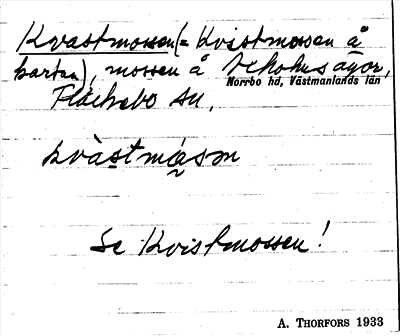 Kvastmossen (= Kvistmossen å
kartan), mossen å Vekohns ägor,
Norrbo hd, Västmanlands län
Fläckebo sn,
kvàstmå̀sən
Se Kvistmossen!
A. THORFORS 1933